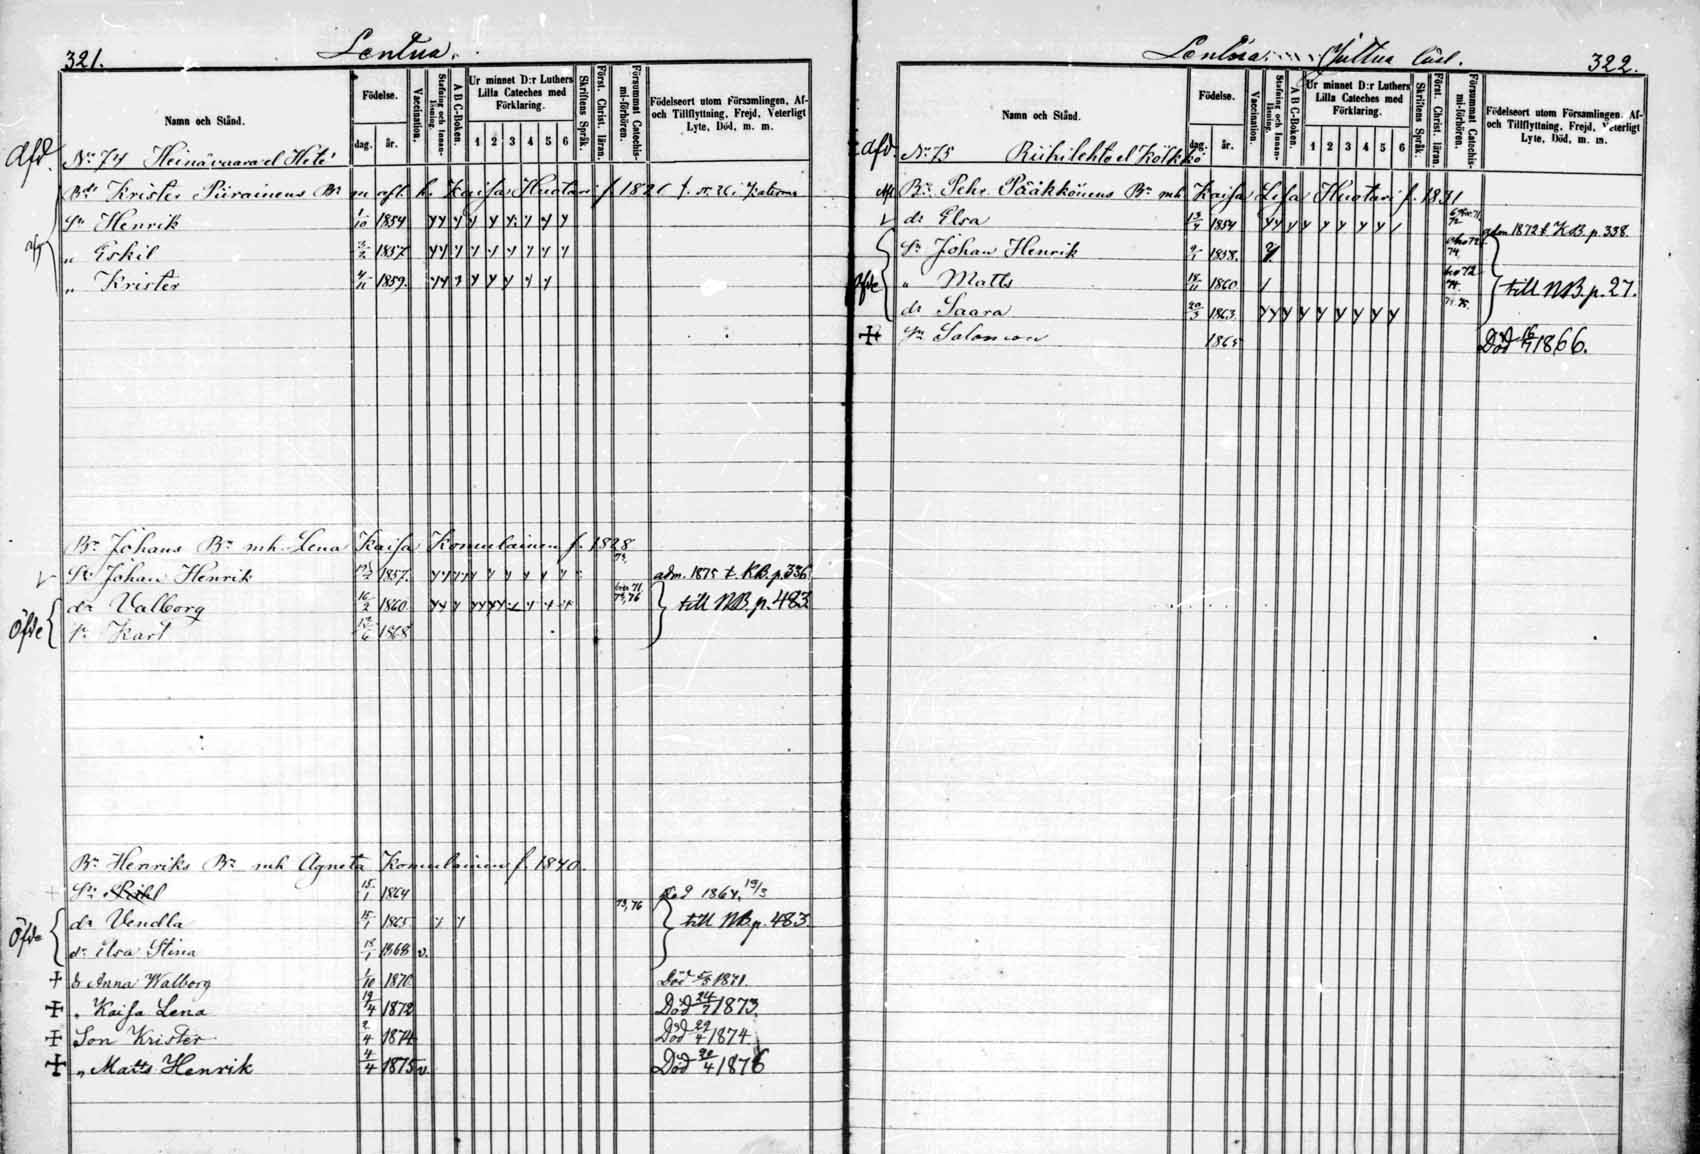 321. Lentua.
Namn och Stånd.
Födelse.
dag. år.
Vaccination.
Stafning och Innan-läsning.
A B C-Boken.
Ur minnet D:r Luthers Lilla Cateches med Förklaring.
1 2 3 4 5 6
Skriftens Språk.
Först. Christ. läran.
Försummat Catechis-mi-förhören.
Födelseort utom Församlingen, Af- och Tillflyttning, Frejd, Veterligt Lyte, Död, m. m.
Afd. No 74 Heinävaara el Hete
Bdr Krister Piirainens Br Kaisa Huotari f. 1826
Sn Henrik 1/10 1854 y y y y y y y y y
„ Eskil 3/2 1857 y y y y y y y y y
„ Krister 4/11 1859. y y y y y y y y
Br Johans Br mh. Lena Kaisa Komulainen f. 1828
Sn Johan Henrik 1857. adm. 1875 t. KB. p. 336.
Öfde dr Valborg 16/2 1860 73, 76 till NB. p. 483
sn Karl 1868
Br Henriks Br mh Agneta Komulainen f. 1840.
Sn 15/1 1864 död 1864, 19/3
Öfde dr Vendla 15/1 1865 y y 73, 76 till NB. p. 483
dr Elsa Stina 18/1 1868 v.
+ d Anna Walborg 1/10 1870 Död 1871.
+ „ Kaisa Lena 19/4 1872 Död 24/7 1873.
+ Son Krister 2/4 1874 Död 22/4 1874
+ „ Matts Henrik 4/4 1875 v. Död 20/4 1876
Lentua. 322.
Namn och Stånd.
Födelse.
dag. år.
Vaccination.
Stafning och Innan-läsning.
A B C-Boken.
Ur minnet D:r Luthers Lilla Cateches med Förklaring.
1 2 3 4 5 6
Skriftens Språk.
Först. Christ. läran.
Försummat Catechis-mi-förhören.
Födelseort utom Församlingen, Af- och Tillflyttning, Frejd, Veterligt Lyte, Död, m. m.
Afd. No 75 Riihilehto el Kölkkö
Br Pehr Pääkkönens Br mh Kaisa Lisa Huotari f. 1831
dr Elsa 1854 y y y y y y y y y adm 1872 t. KB. p. 338.
Sn Johan Henrik 1858.
Öfde „ Matts 18/11 1860 till NB. p. 27.
dr Saara 20/3 1863 y y y y y y y y y
+ Sn Salomon 1865 Död 16/7 1866.